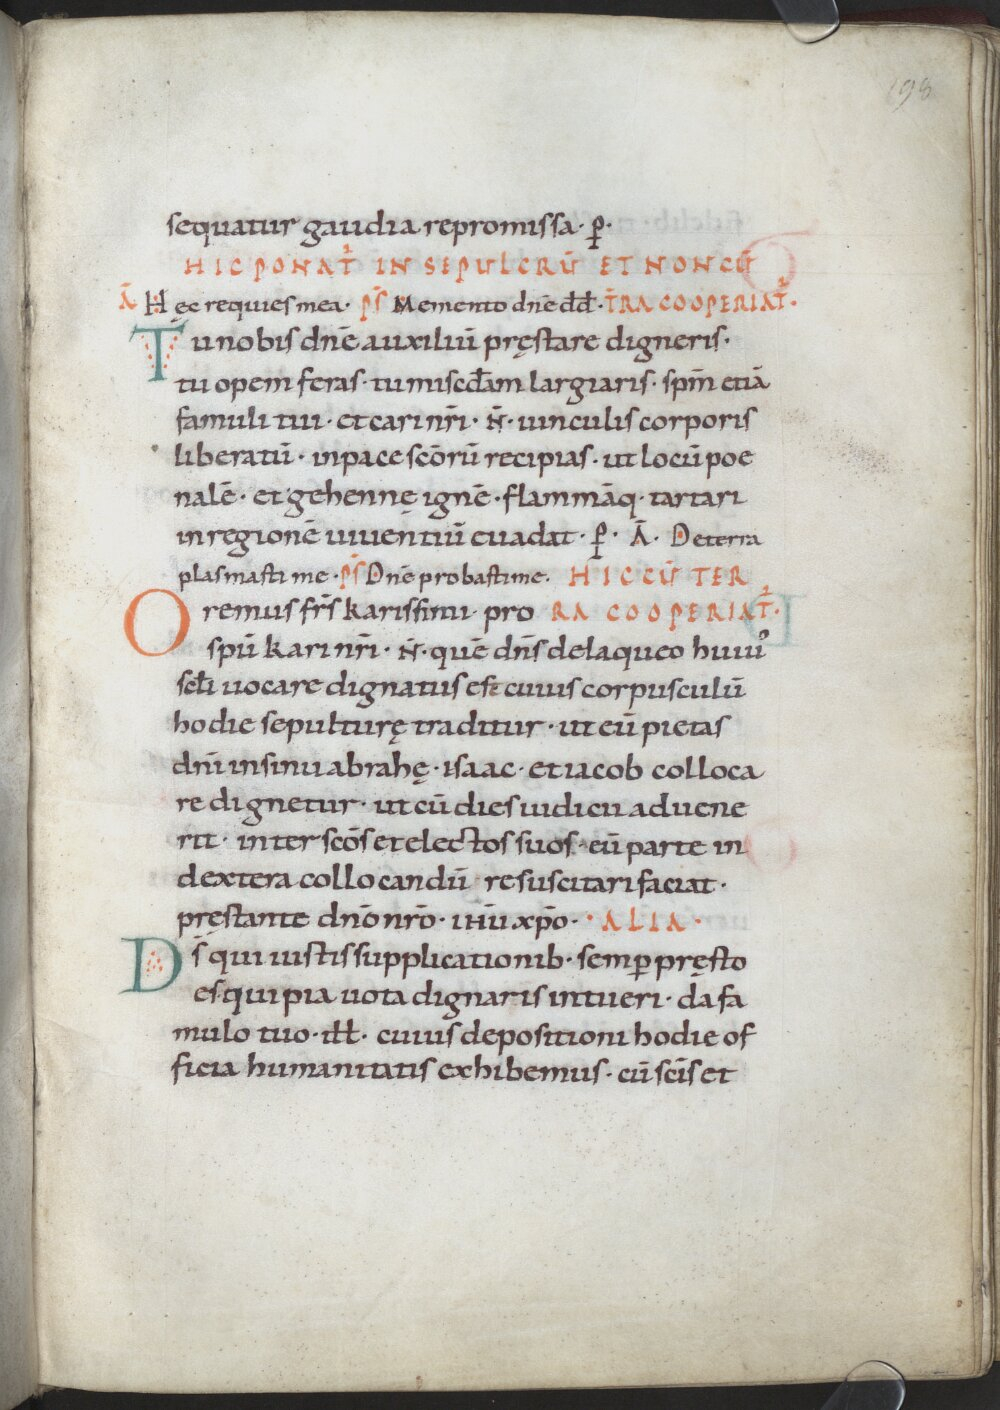 198
sequatur gaudia repromissa · p̄ ·
HIC PONAT̄ IN SEPULCRŪ ET NON CŪ
Ā Hęc requies mea · ps̄ Memento dn̄e dd̄ · TRA COOPERIAT̄ ·
Tu nobis dn̄e auxiliū pręstare digneris ·
tu opem feras · tu misc̄dam largiaris · spm̄ etiā
famuli tui · et cari nr̄i · N̄ · uinculis corporis
liberatū · in pace scōrū recipias · ut locū poe
nalē · et gehennę ignē · flammāq · tartari
in regionē uiuentiū euadat · p̄ · Ā · De terra
plasmasti me · ps̄ Dn̄e probasti me · HIC CŪ TER
Oremus fr̄s karissimi pro RA COOPERIAT̄ ·
spū kari nr̄i · N̄ · quē dn̄s de laqueo huiuꝰ
scł̄i uocare dignatus est cuius corpusculū
hodie sepulturę traditur · ut eū pietas
dn̄i in sinu abrahę · isaac · et iacob colloca
re dignetur · ut cū dies iudicii aduene
rit · inter scōs et electos suos · eū parte in
dextera collocandū resuscitari faciat ·
pręstante dn̄o nr̄o · ihū xp̄o · · ALIA ·
Ds̄ qui iustis supplicationib · semp̄ pręsto
es · qui pia uota dignaris intueri · da fa
mulo tuo · iłł · cuius depositioni hodie of
ficia humanitatis exhibemus · cū sc̄is et